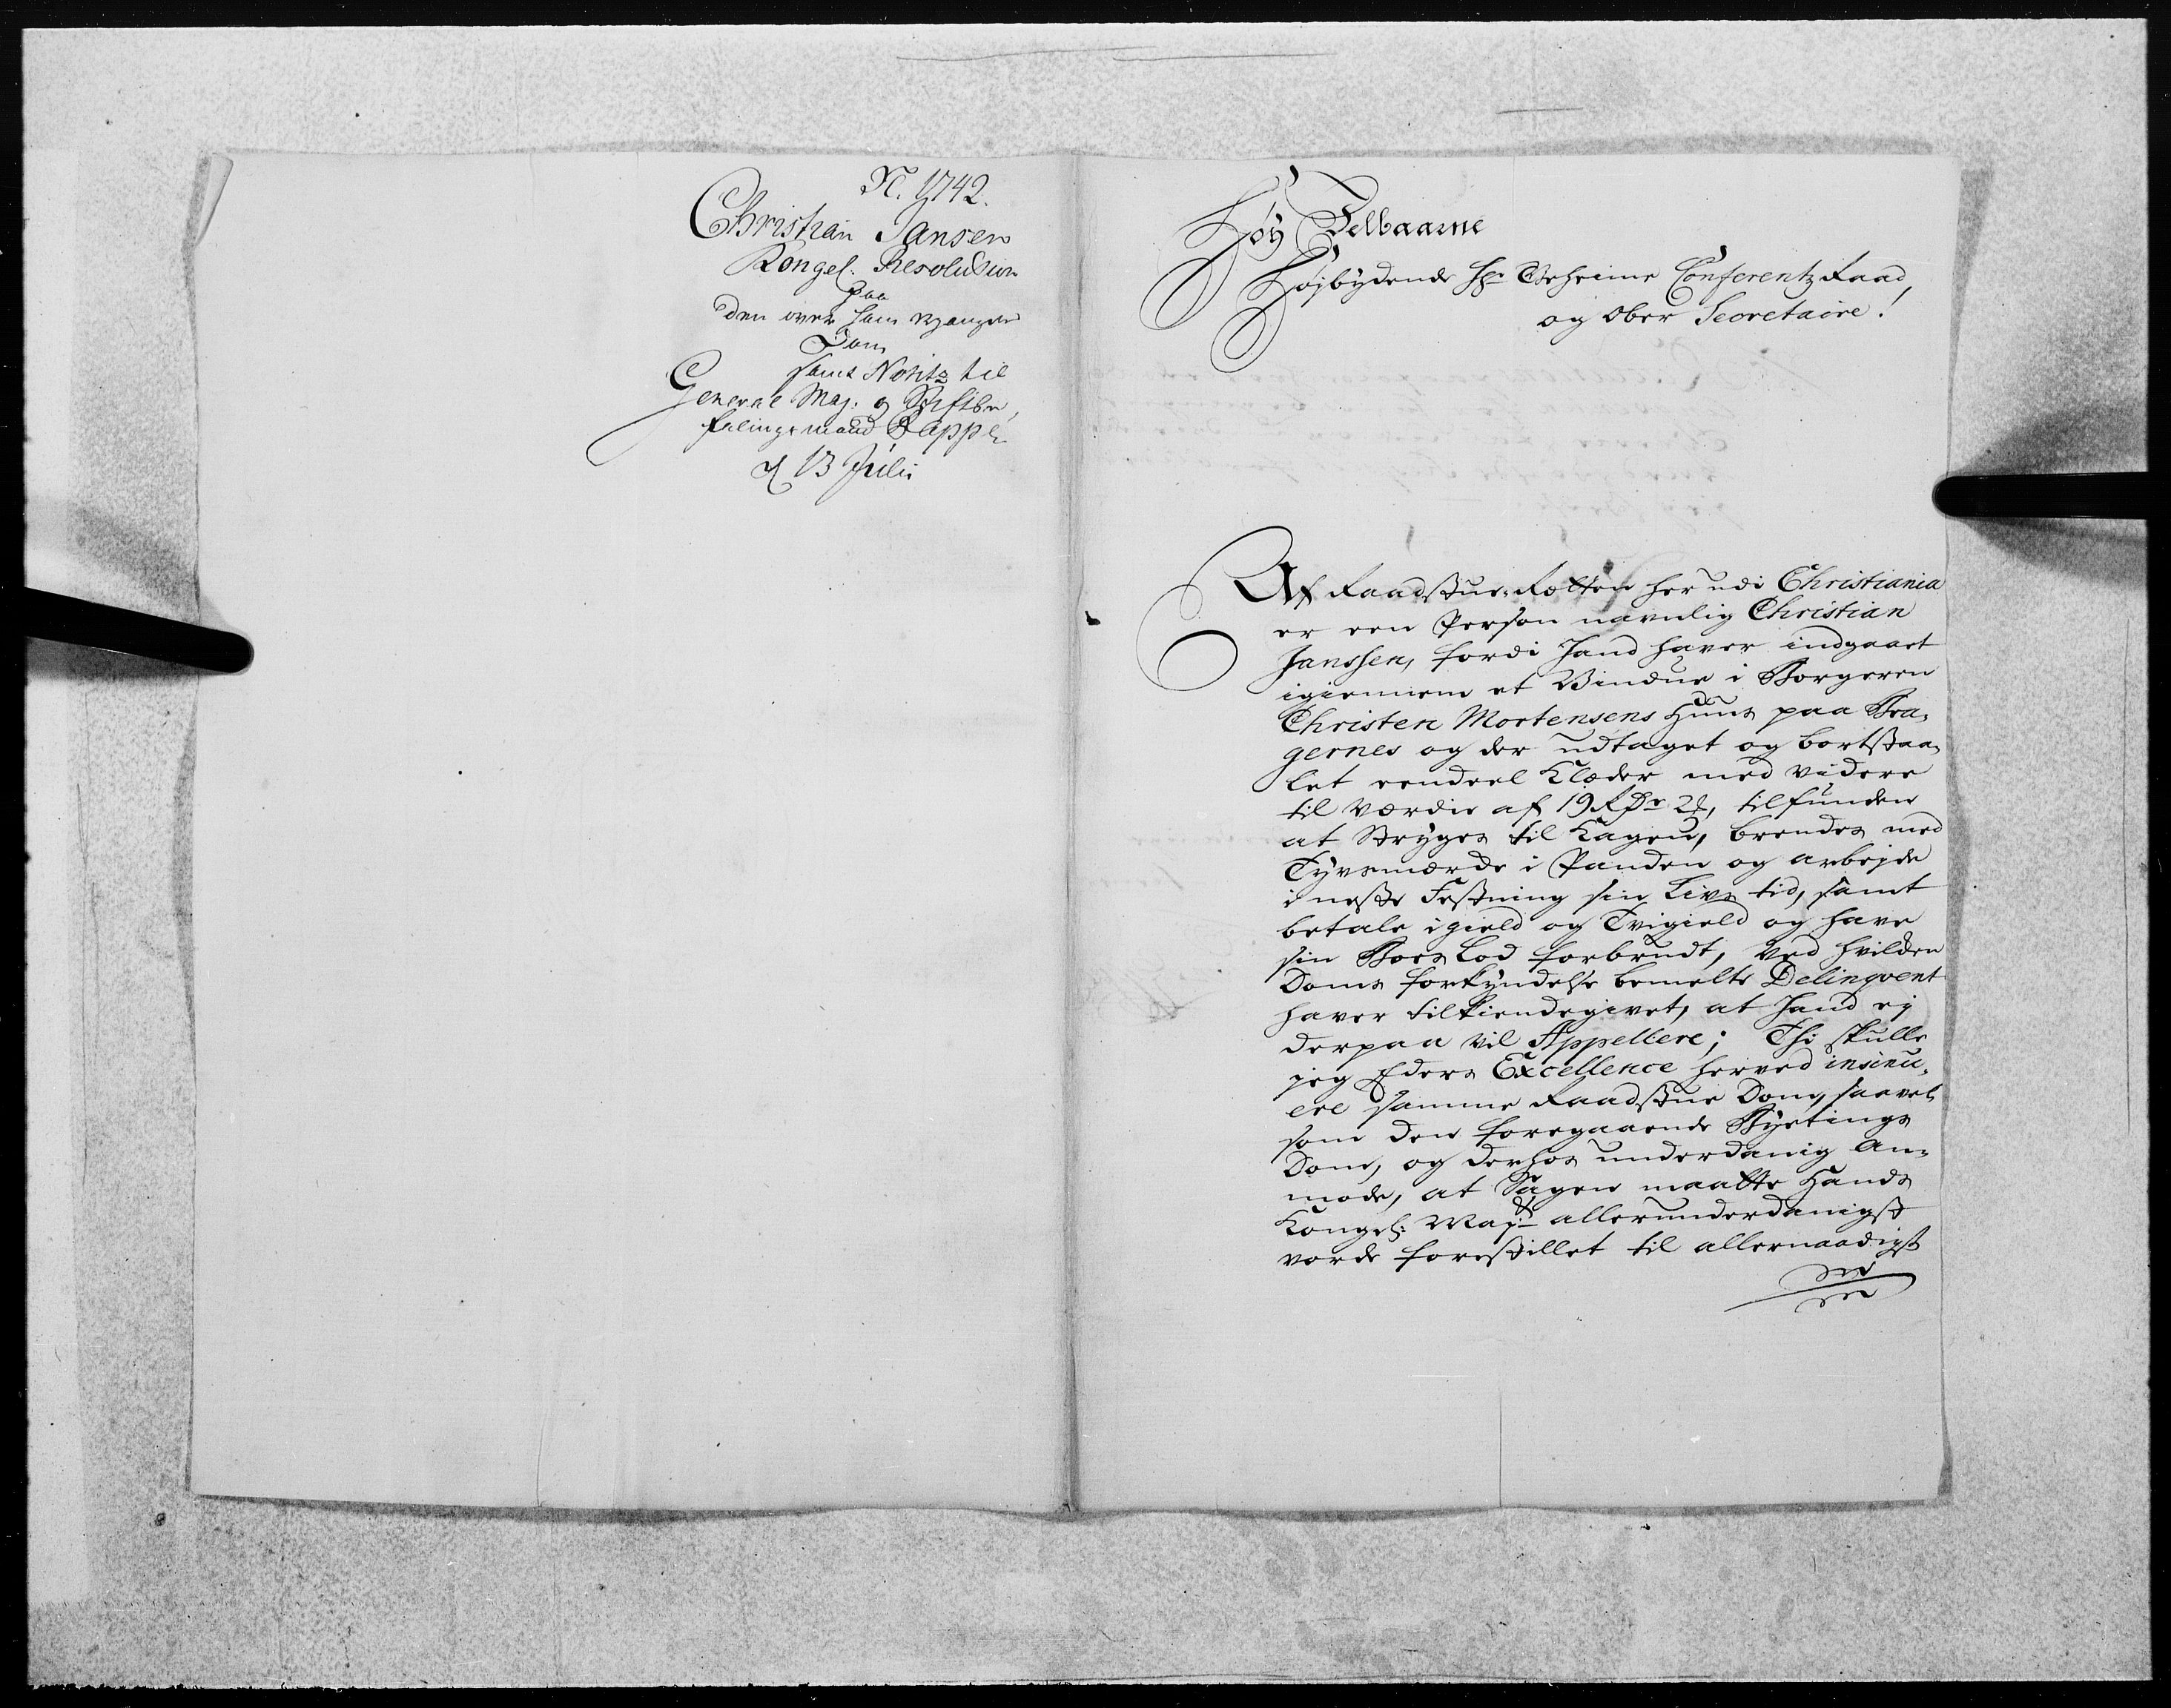 N. 1742.
Christian Jansen
Kongel. Resolution
paa
den over ham ergangne
Dom
samt Notitz til
General Maj: og Stiftbe,
falingsmand Rappe
d 13 Julii
Høy Edelbaarne
Højbydende Hr Geheime Conferentz Raad,
og Ober Secretaire!
Af Raadstue-Rætten her udi Christiania
er een Person navnlig Christian
Janssen, fordi hand haver indgaaet
igiennem et Vindue i Borgeren
Christen Mortensens Huus paa Bra„
gernes og der udtaget og bortstaa„
let eendeel Klæder med videre
til værdie af 19 Rdr 2 , tilfunden
at Stryges til Kagen, brendes med
Tyvsmærke i Panden og arbejde
i neste Festning sin Livs tid, samt
betale igield og Tvigield og have
sin Boes Lod forbrudt, Ved hvilken
Doms forkyndelse bemelte Delinqvent
haver tilkiendegivet, at hand ej
derpaa vil Appellere; Thi skulle
jeg Eders Excellence herved insinu„
ere samme Raadstue Dom, saavel
som den foregaaende Byetings
Dom, og derhos underdanig an„
mode, at Sagen maatte Hands
Kongel: Majt allerunderdanigst
vorde forestillet til allernaadigst